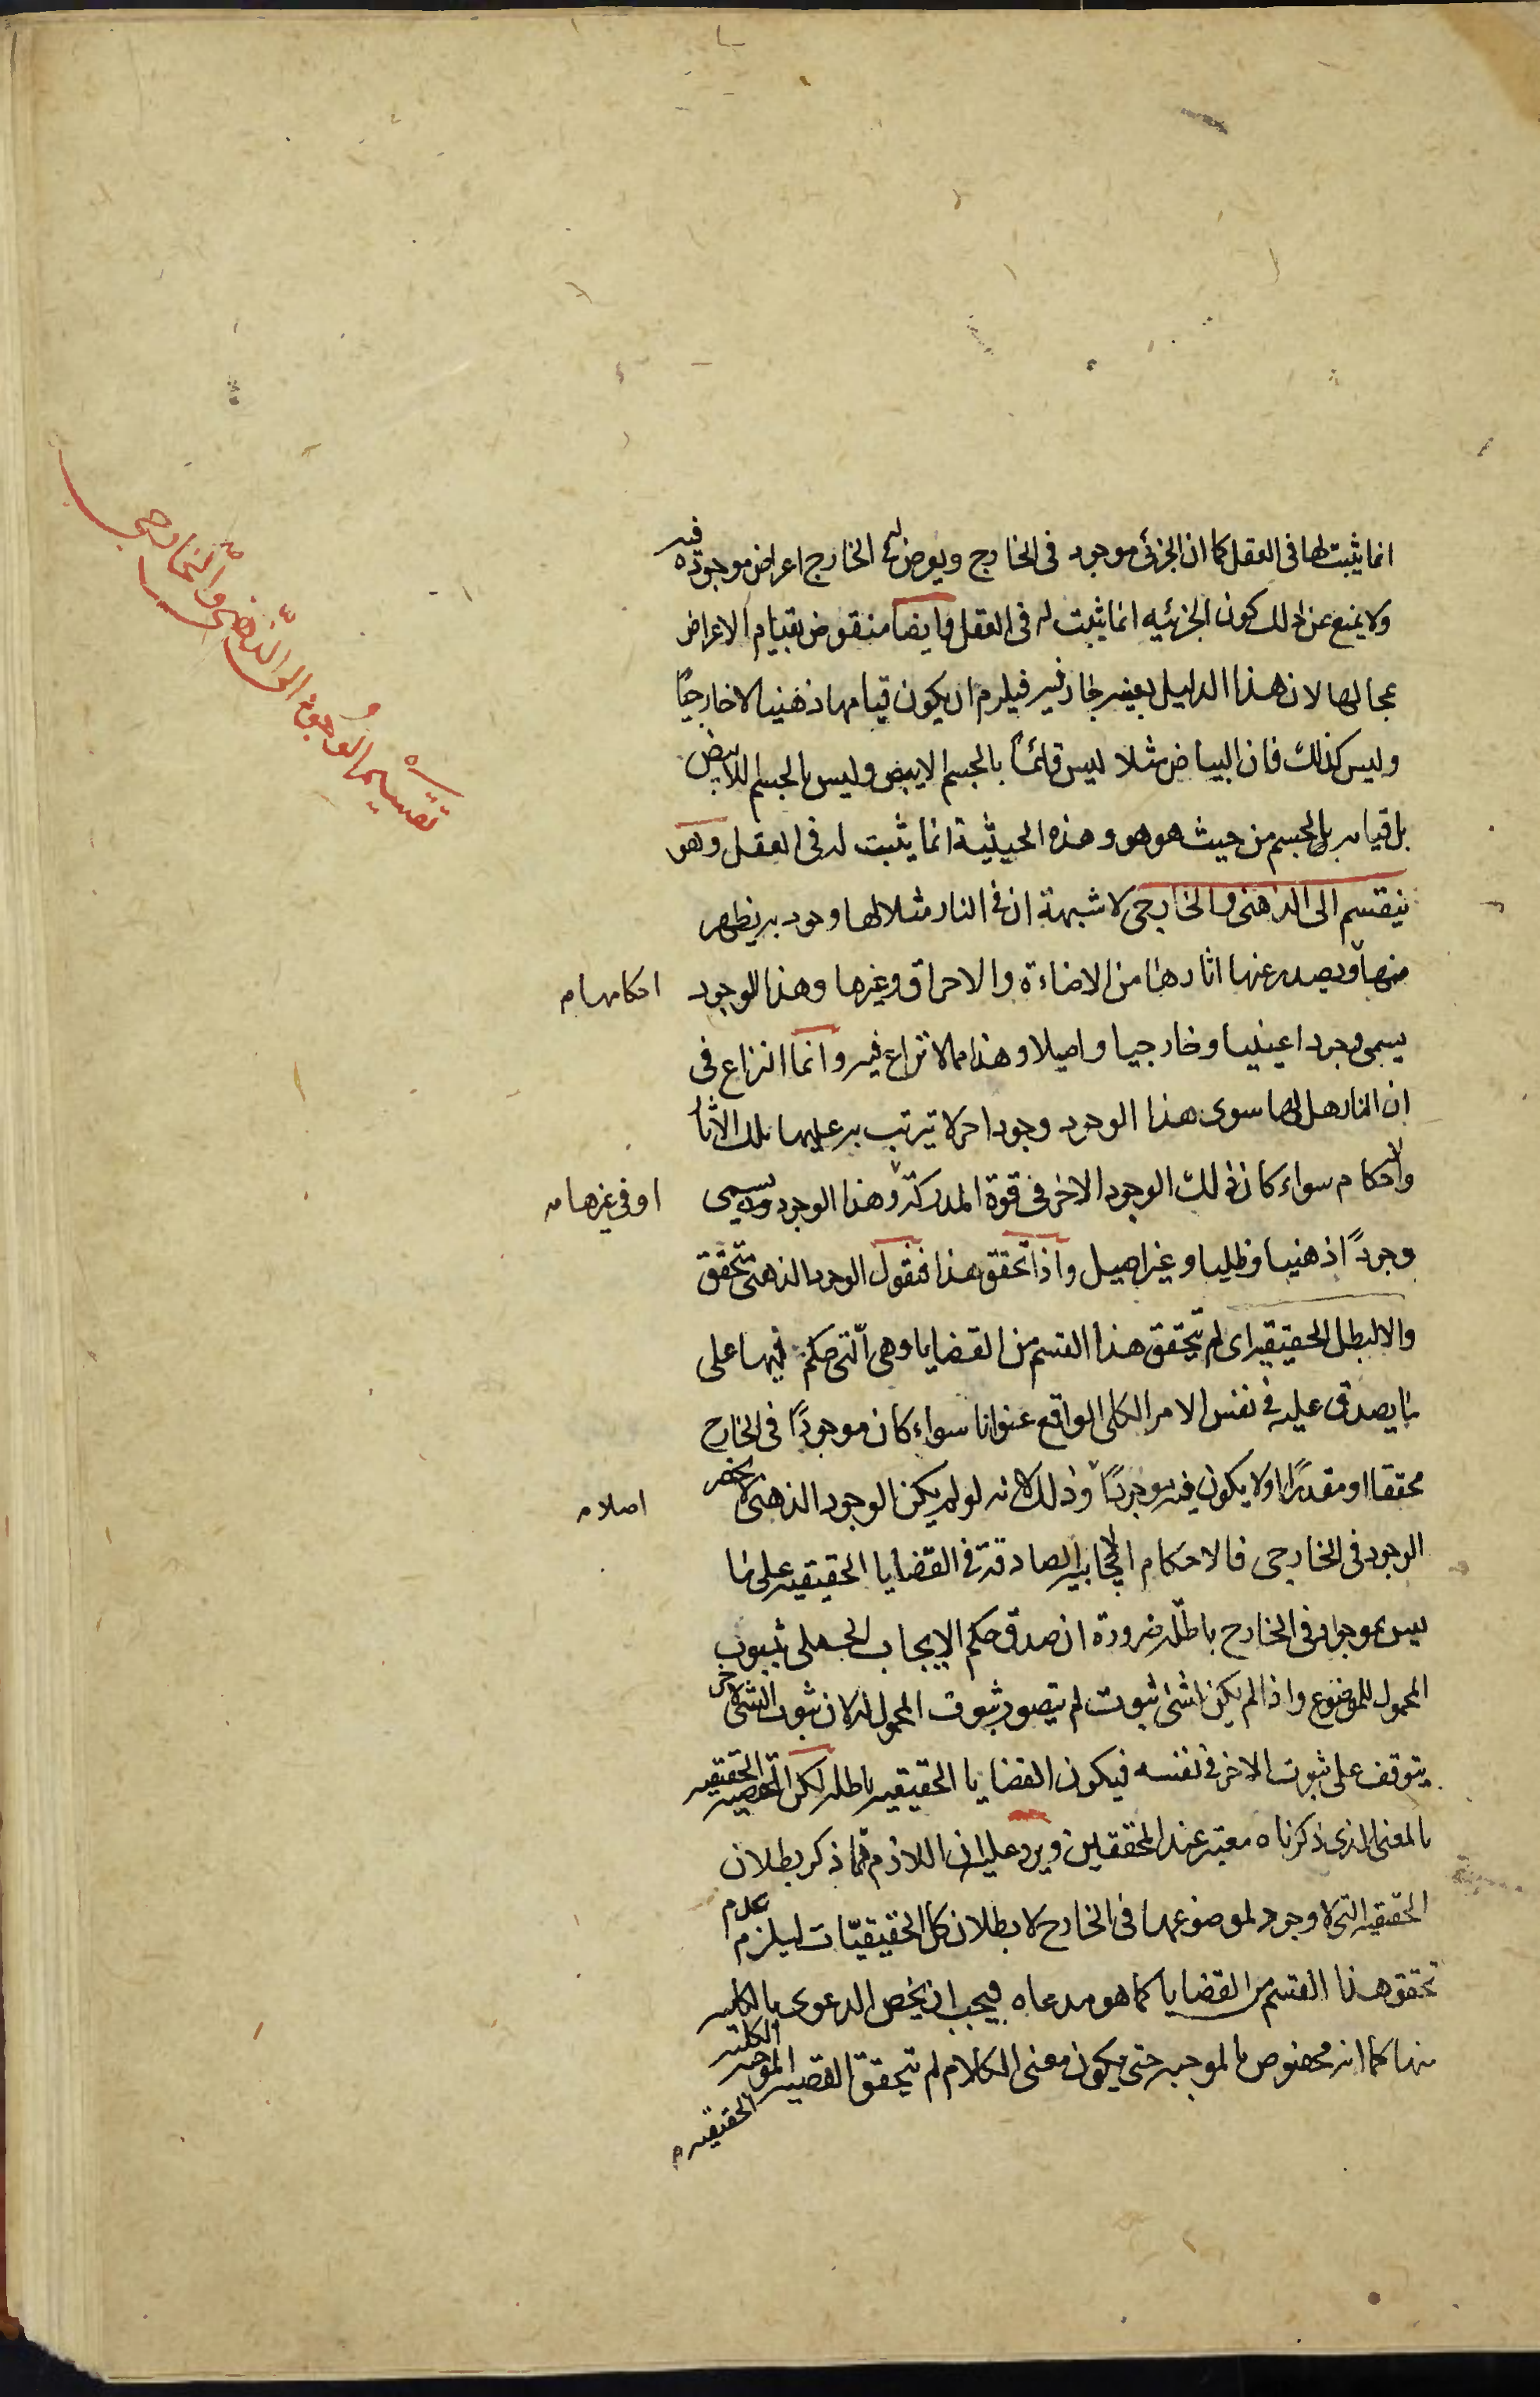 انما يثبت لها فى العقل كما ان الجزئى موجود فى الخارج ويعرض له فى الخارج اعراض موجودة فيه
ولا يمنع عن ذلك كون الجزئيه انما يثبت له فى العقل وايضا منقوض بقيام الاعراض
بمحالها لان هذا الدليل بعينه جار فيه فيلزم ان يكون قيامها ذهنيا لا خارجيًا
وليس كذلك فان البياض مثلا ليس قائمًا بالجسم الابيض وليس بالجسم اللاابيض
بل قيامه بالجسم من حيث هو هو وهذه الحيثية انما يثبت له فى العقل وهو
ينقسم الى الذهنى والخارجى لا شبهة ان فى النار مثلا لها وجود به يظهر
منها ويصدر عنها اثارها من الاضاءة والاحراق وغيرها وهذا الوجود
احكامها م
يسمى وجودا عينيا وخارجيا واصيلا وهذا مما لا نزاع فيه وانما النزاع فى
ان النار هل لها سوى هذا الوجود وجود اخر لا يترتب به عليها تلك الاثا
والاحكام سواء كان ذلك الوجود الاخر فى قوة المدركة وهذا الوجود يسمى
او فى غيرها م
وجودًا ذهنيا وظليا وغير اصيل واذا تحقق هذا فنقول الوجود الذهنى تحقق
والا لبطل الحقيقيه اى لم يتحقق هذا القسم من القضايا وهى الّتى حكم فيها على
ما يصدق عليه فى نفس الامر الكلى الواقع عنوانا سواء كان موجودًا فى الخارج
محققا او مقدرًا او لا يكون فيه موجودًا وذلك لانه لو لم يكن الوجود الذهنى لانحصر
اصلا م
الوجود فى الخارجى فالاحكام الايجابيه الصادقة فى القضايا الحقيقيه على ما
ليس بموجود فى الخارج باطله ضرورة ان صدق حكم الايجاب الحملى ثبوت
المحمول للموضوع واذا لم يكن لشئ ثبوت لم يتصور ثبوت المحمول له لان ثبوت الشئ لاخر
يتوقف على ثبوت الاخر فى نفسه فيكون القضايا الحقيقيه باطله لكن القضيه الحقيقيه
بالمعنى الذى ذكرناه معتبر عند المحققين ويرد عليه ان اللازم مما ذكر بطلان
الحقيقيه التى لا وجود لموضوعها فى الخارج لا بطلان كل الحقيقيّات ليلزم عدم
تحقق هذا القسم من القضايا كما هو مدعاه فيجب ان يخص الدعوى بالكليه
منها كما انه مخصوص بالموجبه حتى يكون معنى الكلام لم يتحقق القضيه الموجبه الكليه
الحقيقيه م
تقسيم الوجود الى الذّهنى والخارجى